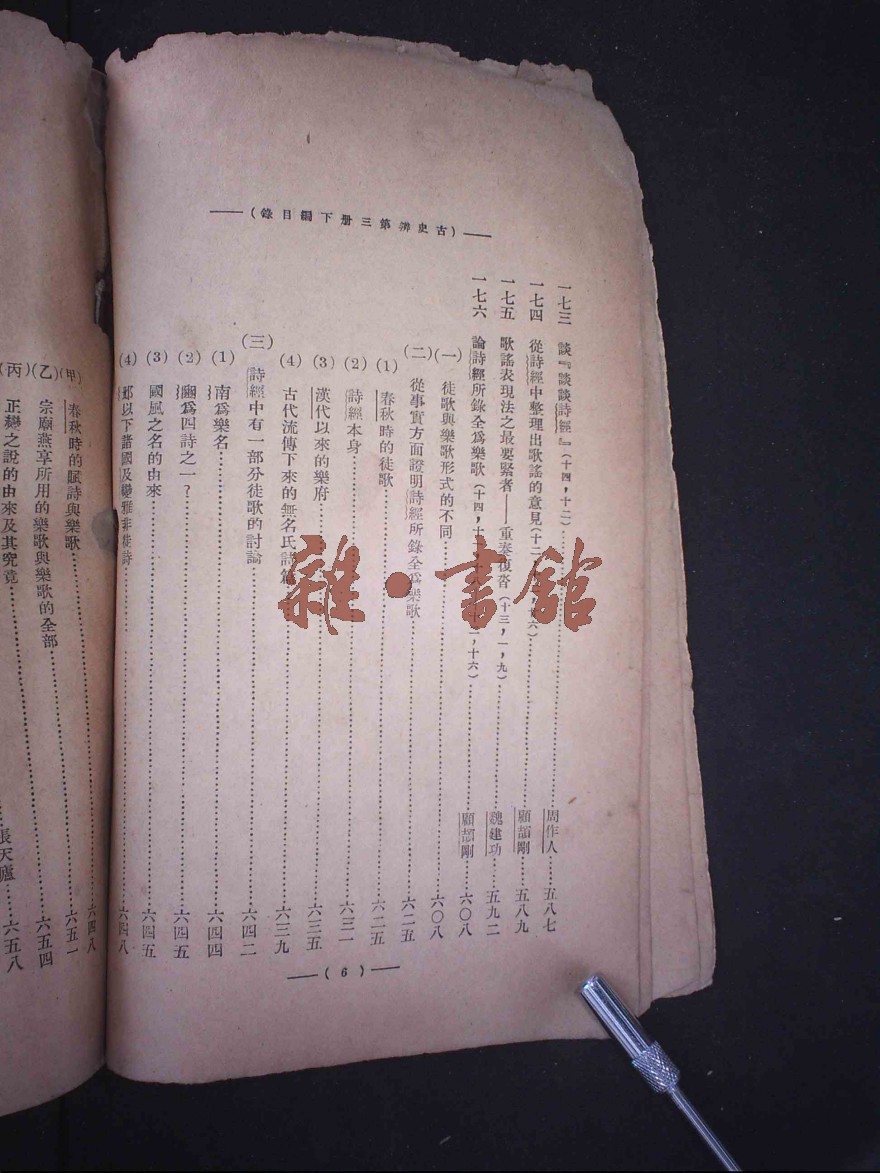 (古史辨第三册下編目錄)
一七三 談『談談詩經』(十四，十二)……周作人……五八七
一七四 從詩經中整理出歌謠的意見(十二 六)……顧頡剛……五八九
一七五 歌謠表現法之最要緊者——重奏復沓(十三，一，九)……魏建功……五九二
一七六 論詩經所錄全爲樂歌(十四，十 十六)……顧頡剛……六〇八
(一) 徒歌與樂歌形式的不同……六〇八
(二) 從事實方面證明詩經所錄全爲樂歌……六二五
(1) 春秋時的徒歌……六二五
(2) 詩經本身……六三一
(3) 漢代以來的樂府……六三五
(4) 古代流傳下來的無名氏詩篇……六三九
(三) 詩經中有一部分徒歌的討論……六四二
(1) 南爲樂名……六四四
(2) 豳爲四詩之一？……六四五
(3) 國風之名的由來……六四五
(4) 邶以下諸國及變雅非徒詩……六四八
(6)
(甲) 春秋時的賦詩與樂歌……六四八
(乙) 宗廟燕享所用的樂歌與樂歌的全部……六五一
(丙) 正變之說的由來及其究竟……六五四
張天廬……六五八
雜·書館